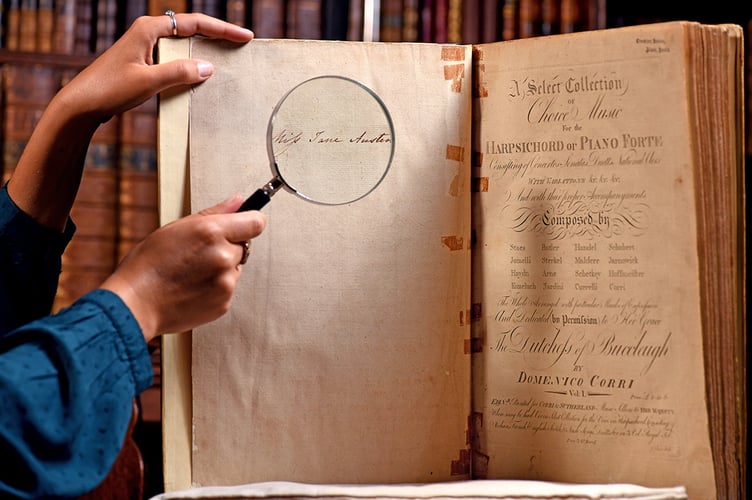 Miss Jane Austen
A Select Collection
OF
Choice Music
For the
HARPSICHORD OR PIANO FORTE
Consisting of Concertos Sonatas Duetts National Airs
WITH VARIATIONS &c. &c. &c.
And with their proper Accompanyments
Composed by
Staes Butler Handel Schobert
Jomelli Sterkel Maldere Jarnowick
Haydn Arne Schetkey Hoffmeister
Kozeluch Jardini Correlli Corri
The Whole Arranged with particular Marks of Expression
And Dedicated by Permission to Her Grace
The Dutchess of Buccleugh
BY
DOMENICO CORRI
Vol: I.
Printed for CORRI & SUTHERLAND Music Sellers to HER MAJESTY